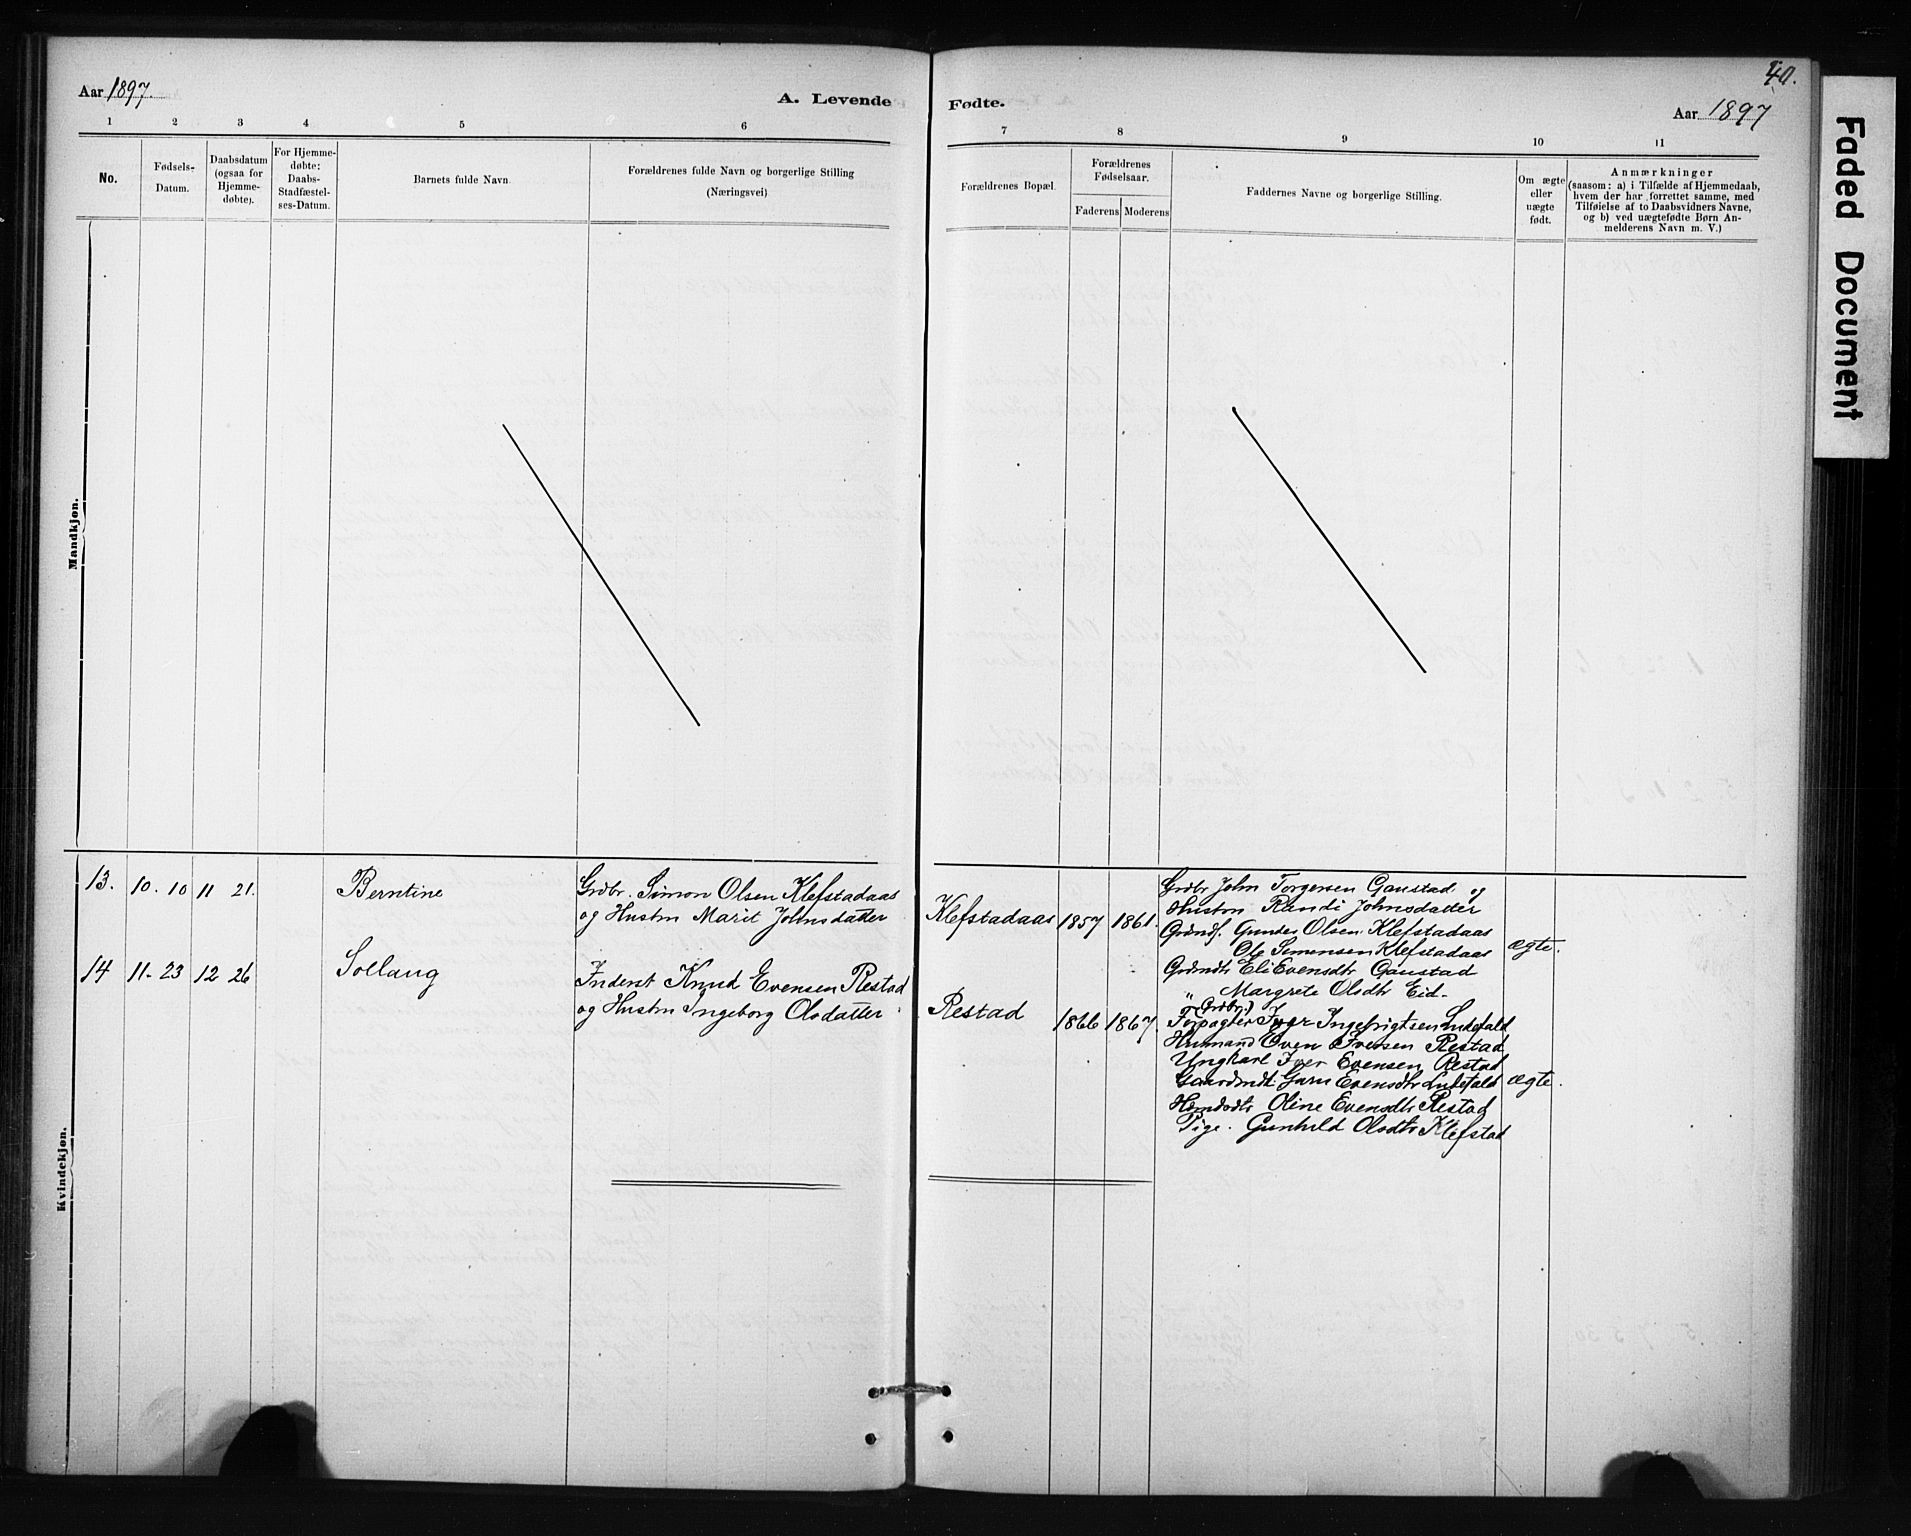 40.
Aar 1897.
A. Levende Fødte.
Aar 1897
1 2 3 4 5 6 7 8 9 10 11
No.
Fødsels-
Datum.
Daabsdatum
(ogsaa for
Hjemme-
døbte).
For Hjemme-
døbte:
Daabs-
Stadfæstel-
ses-Datum.
Barnets fulde Navn.
Forældrenes fulde Navn og borgerlige Stilling
(Næringsvei)
Forældrenes Bopæl.
Forældrenes
Fødselsaar.
Faderens Moderens
Faddernes Navne og borgerlige Stilling.
Om ægte
eller
uægte
født.
Anmærkninger
(saasom: a) i Tilfælde af Hjemmedaab,
hvem der har forrettet samme, med
Tilføielse af to Daabsvidners Navne,
og b) ved uægtefødte Børn An-
melderens Navn m. V.)
Faded Document
Mandkjøn.
Kvindekjøn.
13. 10. 10 11 21. Berntine
Grdbr. Simon Olsen Klefstadaas
og Hustru Marit Johnsdatter
Klefstadaas 1857 1861.
Grdbr John Torgersen Ganstad og
Hustru Randi Johnsdatter
Grdmds. Gunder Olsen Klefstadaas
Ole Simensen Klefstadaas
ægte.
Grdmdtr Eli Evensdtr Ganstad
" Margrete Olsdtr Eid-
14 11- 23 12 26 Sollaug
Inderst Knud Evensen Restad
og Hustru Ingeborg Olsdatter
Restad 1866 1867.
(Grdbr.)
Forpagter Iver Ingebrigtsen Lidefald
Husmand Even Iversen Restad
Ungkarl Iver Evensen Restad
Gaardmdt. Guru Evensdtr Lidefald
ægte.
Hsmdsdtr Oline Evensdtr Restad
Pige. Gunhild Olsdtr Klefstad